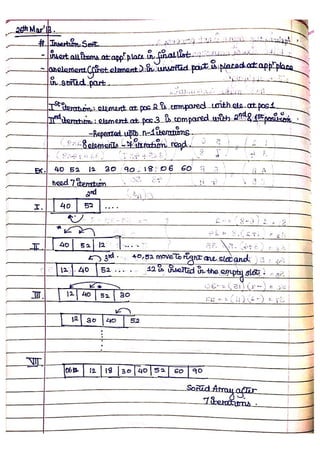 20th Mar'18.
# Insertion Sort
- insert all items at app' place in final list.
- an element (first element) in unsorted part is placed at app' place
in sorted part.
Ist iteration: element at pos 2 is compared with ele. at pos 1
IInd iteration: element at pos 3 is compared with 2nd & 1st position
- Repeated upto n-1 iterations.
8 elements - 7 iteration need.
Ex. 40 52 12 30 90 18 06 60
need 7 iteration
2nd
I. 40 52 ....
II 40 52 12 ....
3rd. 40,52 move to right one slot and
12 40 52 ..... 12 is inserted in the empty slot.
III. 12 40 52 30
12 30 40 52
VII 06 12 18 30 40 52 60 90
Sorted Array after
7 iterations.